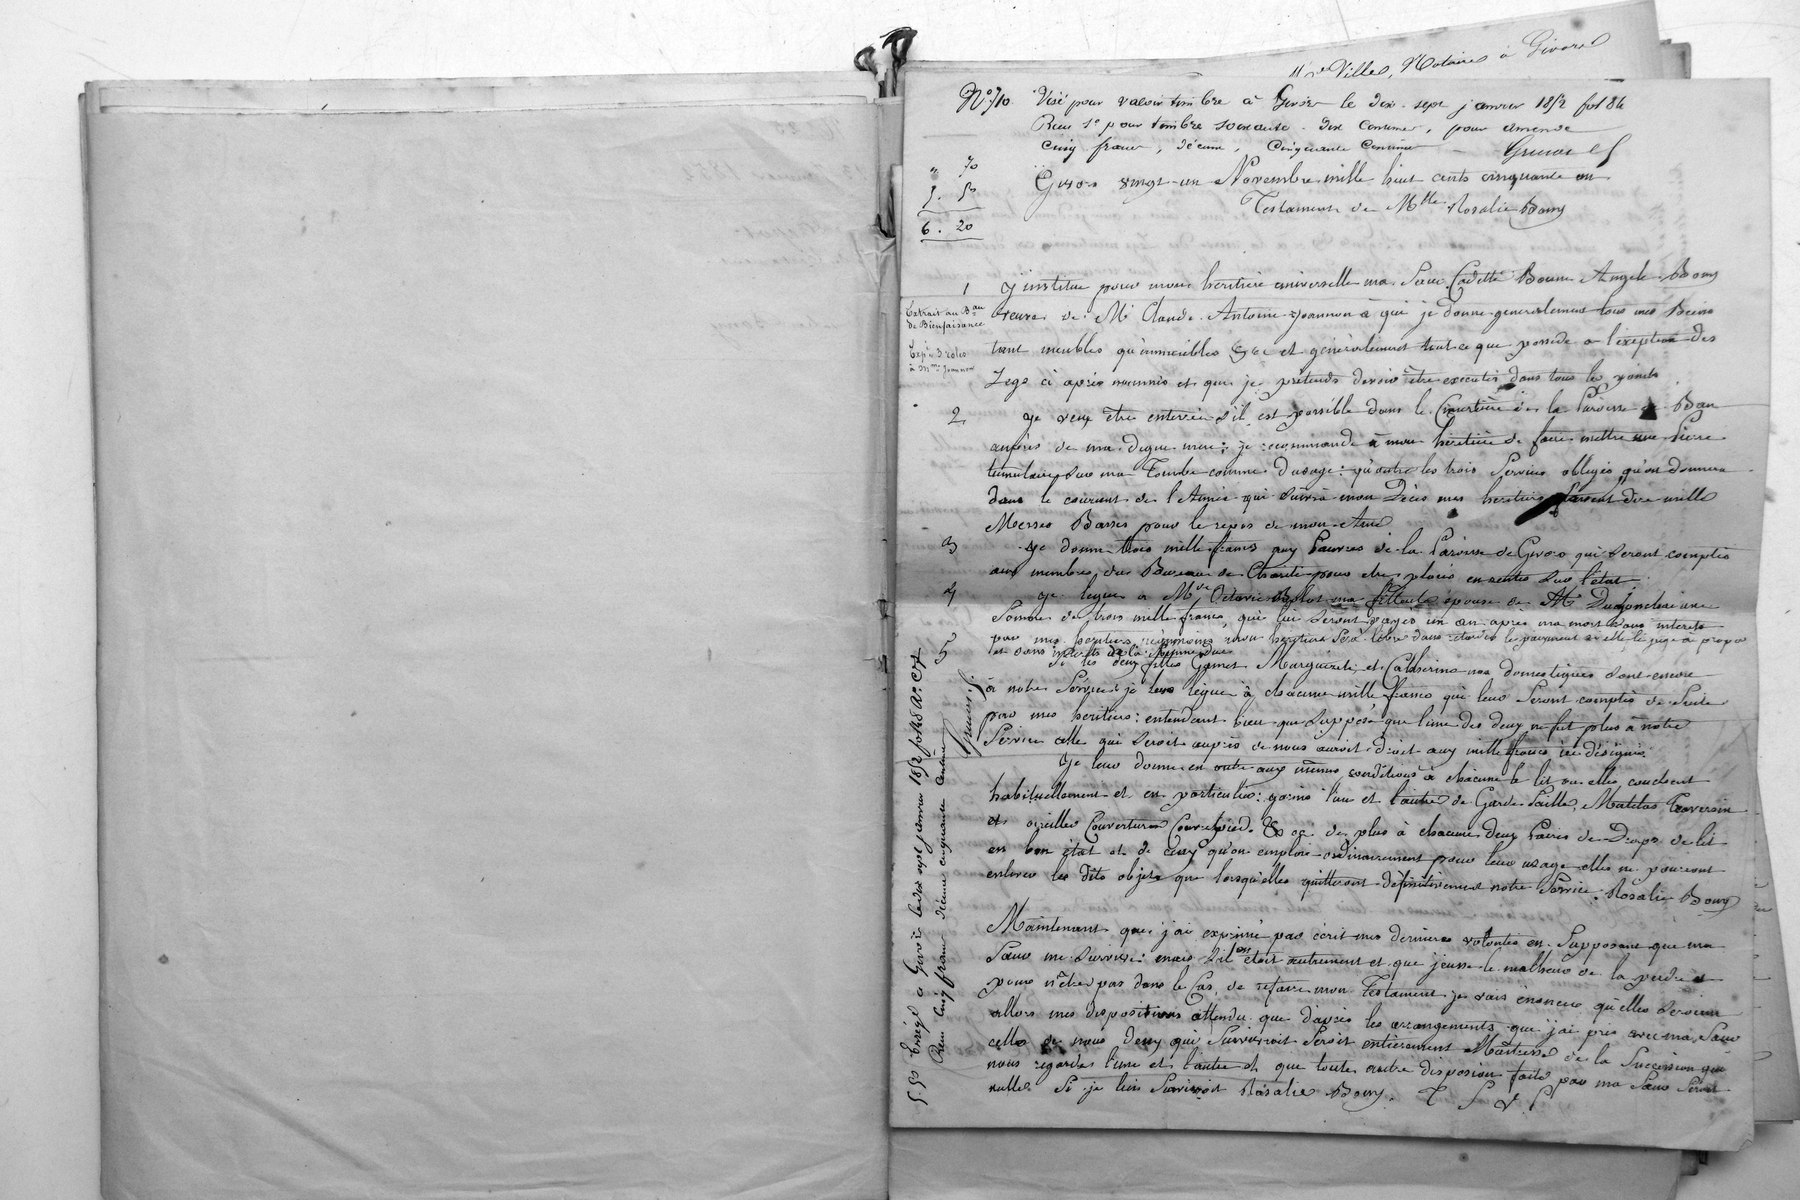 Mre Villes, Notaire à Givors
No 710 Visé pour valoir timbre à Givors le dix-sept janvier 1852 fol 86
Reçu pour timbre soixante-dix centimes, pour amende
cinq francs, décime, cinquante centimes
" 70
5. 50
6. 20
Givors vingt-un Novembre mille huit cents cinquante un
Testament de Mlle Rosalie Bony
1 J'institue pour mon héritière universelle ma Sœur Cadette Bonne Angele Bony
Extrait au Bau
de Bienfaisance
Expn 3 roles
à Mme Joannon
veuve de Mr Claude Antoine Joannon à qui je donne generalement tous mes Biens
tant meubles qu'immeubles &c et généralement tout ce que possède a l'exeption des
Legs ci après nommés et que je prétends devoir être executés dans tous les points
2 Je veux être enterrée s'il est possible dans le Cimetière de la Paroisse de Ban
auprès de ma Digne mere; je recommande à mon héritière de faire mettre une Pierre
tumulaire sur ma Tombe comme d'usage: qu'outre les trois Services obligés qu'on donnera
dans le courant de l'Année qui suivra mon Décès mes heritiers fassent dire mille
Messes Basses pour le repos de mon Ame
3 Je donne trois mille francs aux Pauvres de la Paroisse de Givors qui seront comptés
aux membres du Bureau de Charité pour etre placés en rentes sur l'etat
4 Je legue a Mme Octavie ma filleule épouse de Mr une
Somme de trois mille francs, qui lui seront payés un an après ma mort sans interets
par mes heritiers, néanmoins mon heritiere sera libre dans retarder le payement si elle le juge à propos
et sans interets de la Somme due
5 Si les deux filles Gamet Marguerite et Catherine nos domestiques sont encore
à notre Service je leur lègue à chacune mille francs qui leur seront comptés de suite
par mes heritiers: entendant bien que supposé que l'une des deux ne fut plus à notre
Service celle qui seroit auprès de nous auroit droit aux mille francs ici désignés
Je leur donne en outre aux mêmes conditions à chacune le lit ou elles couchent
habituellement et en particulier: garnis l'un et l'autre de Garde Paille, Matelas traversin
et oreiller Couvertures Couvrepied. &c de plus à chacune deux Paires de Draps de lit
en bon état et de ceux qu'on emploie ordinairement pour leur usage elles ne pourront
enlever les dits objets que lorsqu'elles quitteront définitivement notre Service. Rosalie Bony
Maintenant que j'ai exprimé par écrit mes dernieres volontés en supposant que ma
Sœur me survive: mais s'il en étoit autrement et que j'eusse le malheur de la perdre et
pour n'être pas dans le Cas de refaire mon Testament je vais énoncer qu'elles seroient
allors mes dispositions attendu que d'après les arrangements que j'ai pris avec ma Sœur
celle de nous deux qui Survivroit Seroit entièrement Maitresse de la Succession qui
nous regarde l'une et l'autre et que toute autre disposion faite par ma Sœur Seroit
nulle Si je lui Survivois Rosalie Bony. T S V P
5.50 Enregé à Givors le dix sept janvier 1852 fol 48
Reçu cinq francs décime cinquante centimes